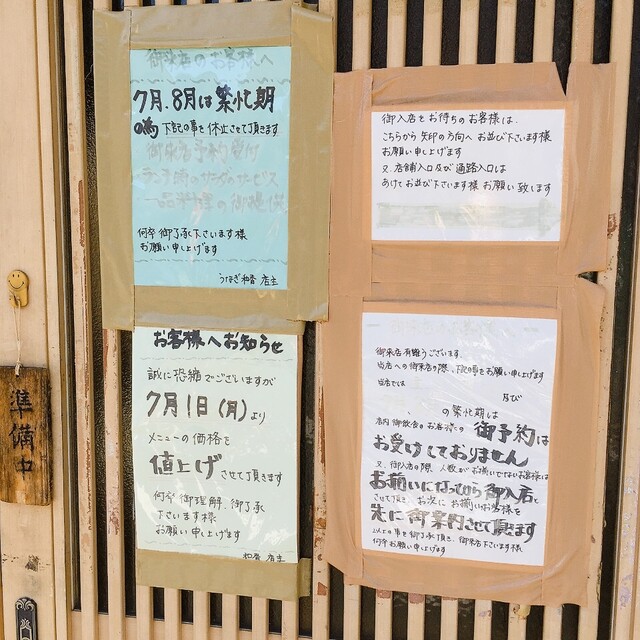 御来店のお客様へ
7月、8月は繁忙期
の為 下記の事を休止させて頂きます
御来店予約受付
ランチ時のサラダのサービス
一品料理の御提供
何卒御了承下さいます様
お願い申し上げます
うなぎ和香 店主
お客様へお知らせ
誠に恐縮でございますが
7月1日(月)より
メニューの価格を
値上げさせて頂きます
何卒御理解、御了承
下さいます様
お願い申し上げます
和香 店主
御入店をお待ちのお客様は、
こちらから矢印の方向へお並び下さいます様
お願い申し上げます
又、店舗入口及び通路入口は
あけてお並び下さいます様お願い致します
御来店有難うございます。
当店への御来店の際、下記の事をお願い申し上げます
当店では
及び
の繁忙期は
店内御飲食のお客様の御予約は
お受けしておりません
又、御入店の際、人数がお揃いでないお客様は
お揃いになってから御入店と
させて頂き、お次にお揃いのお客様を
先に御案内させて頂きます
以上の事を御了承頂き、御来店下さいます様
何卒お願い申し上げます
準備中